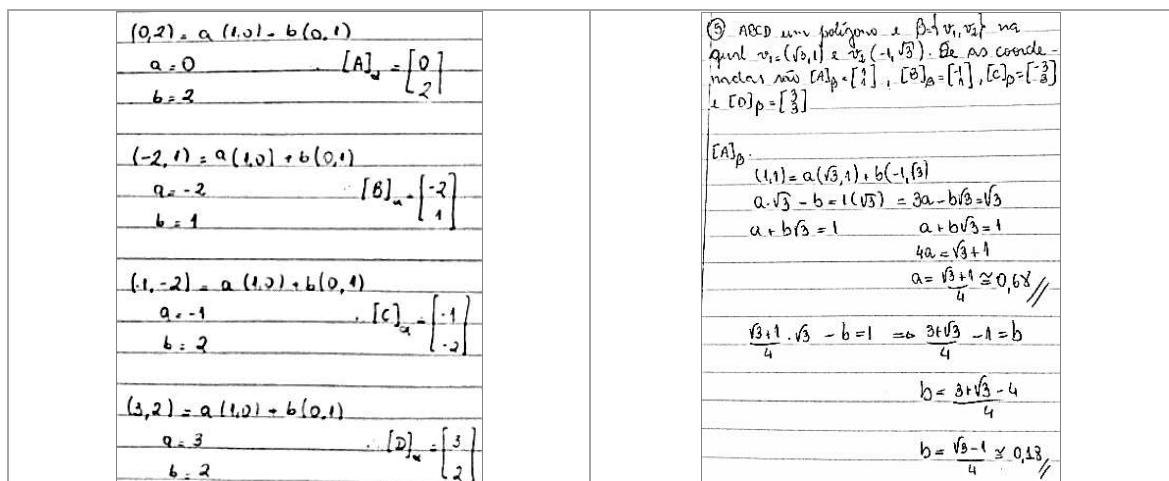 (0,2) = a(1,0) - b(0,1)
a = 0
b = 2
∴ [A]α = [0 2]
(-2,1) = a(1,0) + b(0,1)
a = -2
b = 1
∴ [B]α = [-2 1]
(-1,-2) = a(1,0) + b(0,1)
a = -1
b = 2
∴ [C]α = [-1 -2]
(3,2) = a(1,0) + b(0,1)
a = 3
b = 2
∴ [D]α = [3 2]
⑤ ABCD um polígono e β={v₁,v₂} na
qual v₁=(√3,1) e v₂(-1,√3). Se as coorde-
nadas são [A]β=[1 1], [B]β=[-1 1], [C]β=[-3 3]
e [D]β=[3 3]
[A]β.
(1,1) = a(√3,1) + b(-1,√3)
a.√3 - b = 1(√3) = 3a - b√3 = √3
a + b√3 = 1 a + b√3 = 1
4a = √3 + 1
a = √3+1/4 ≅ 0,68//
√3+1/4 . √3 - b = 1 => 3+√3/4 - 1 = b
b = 3+√3-4/4
b = √3-1/4 ≅ 0,18//